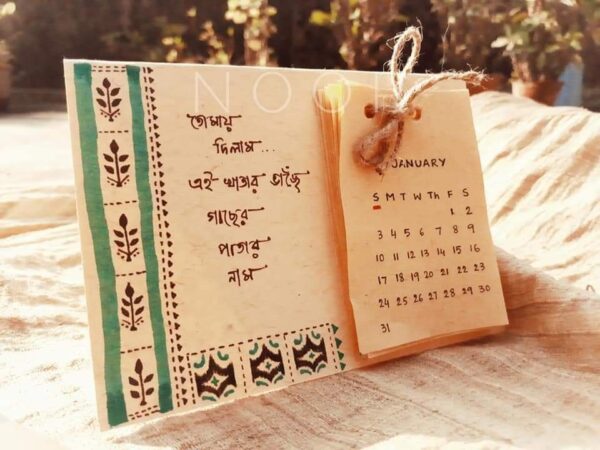 NOOR
তোমায়
দিলাম...
এই খাতার ভাঁজে
গাছের
পাতার
নাম
JANUARY
S M T W Th F S
1 2
3 4 5 6 7 8 9
10 11 12 13 14 15 16
17 18 19 20 21 22 23
24 25 26 27 28 29 30
31